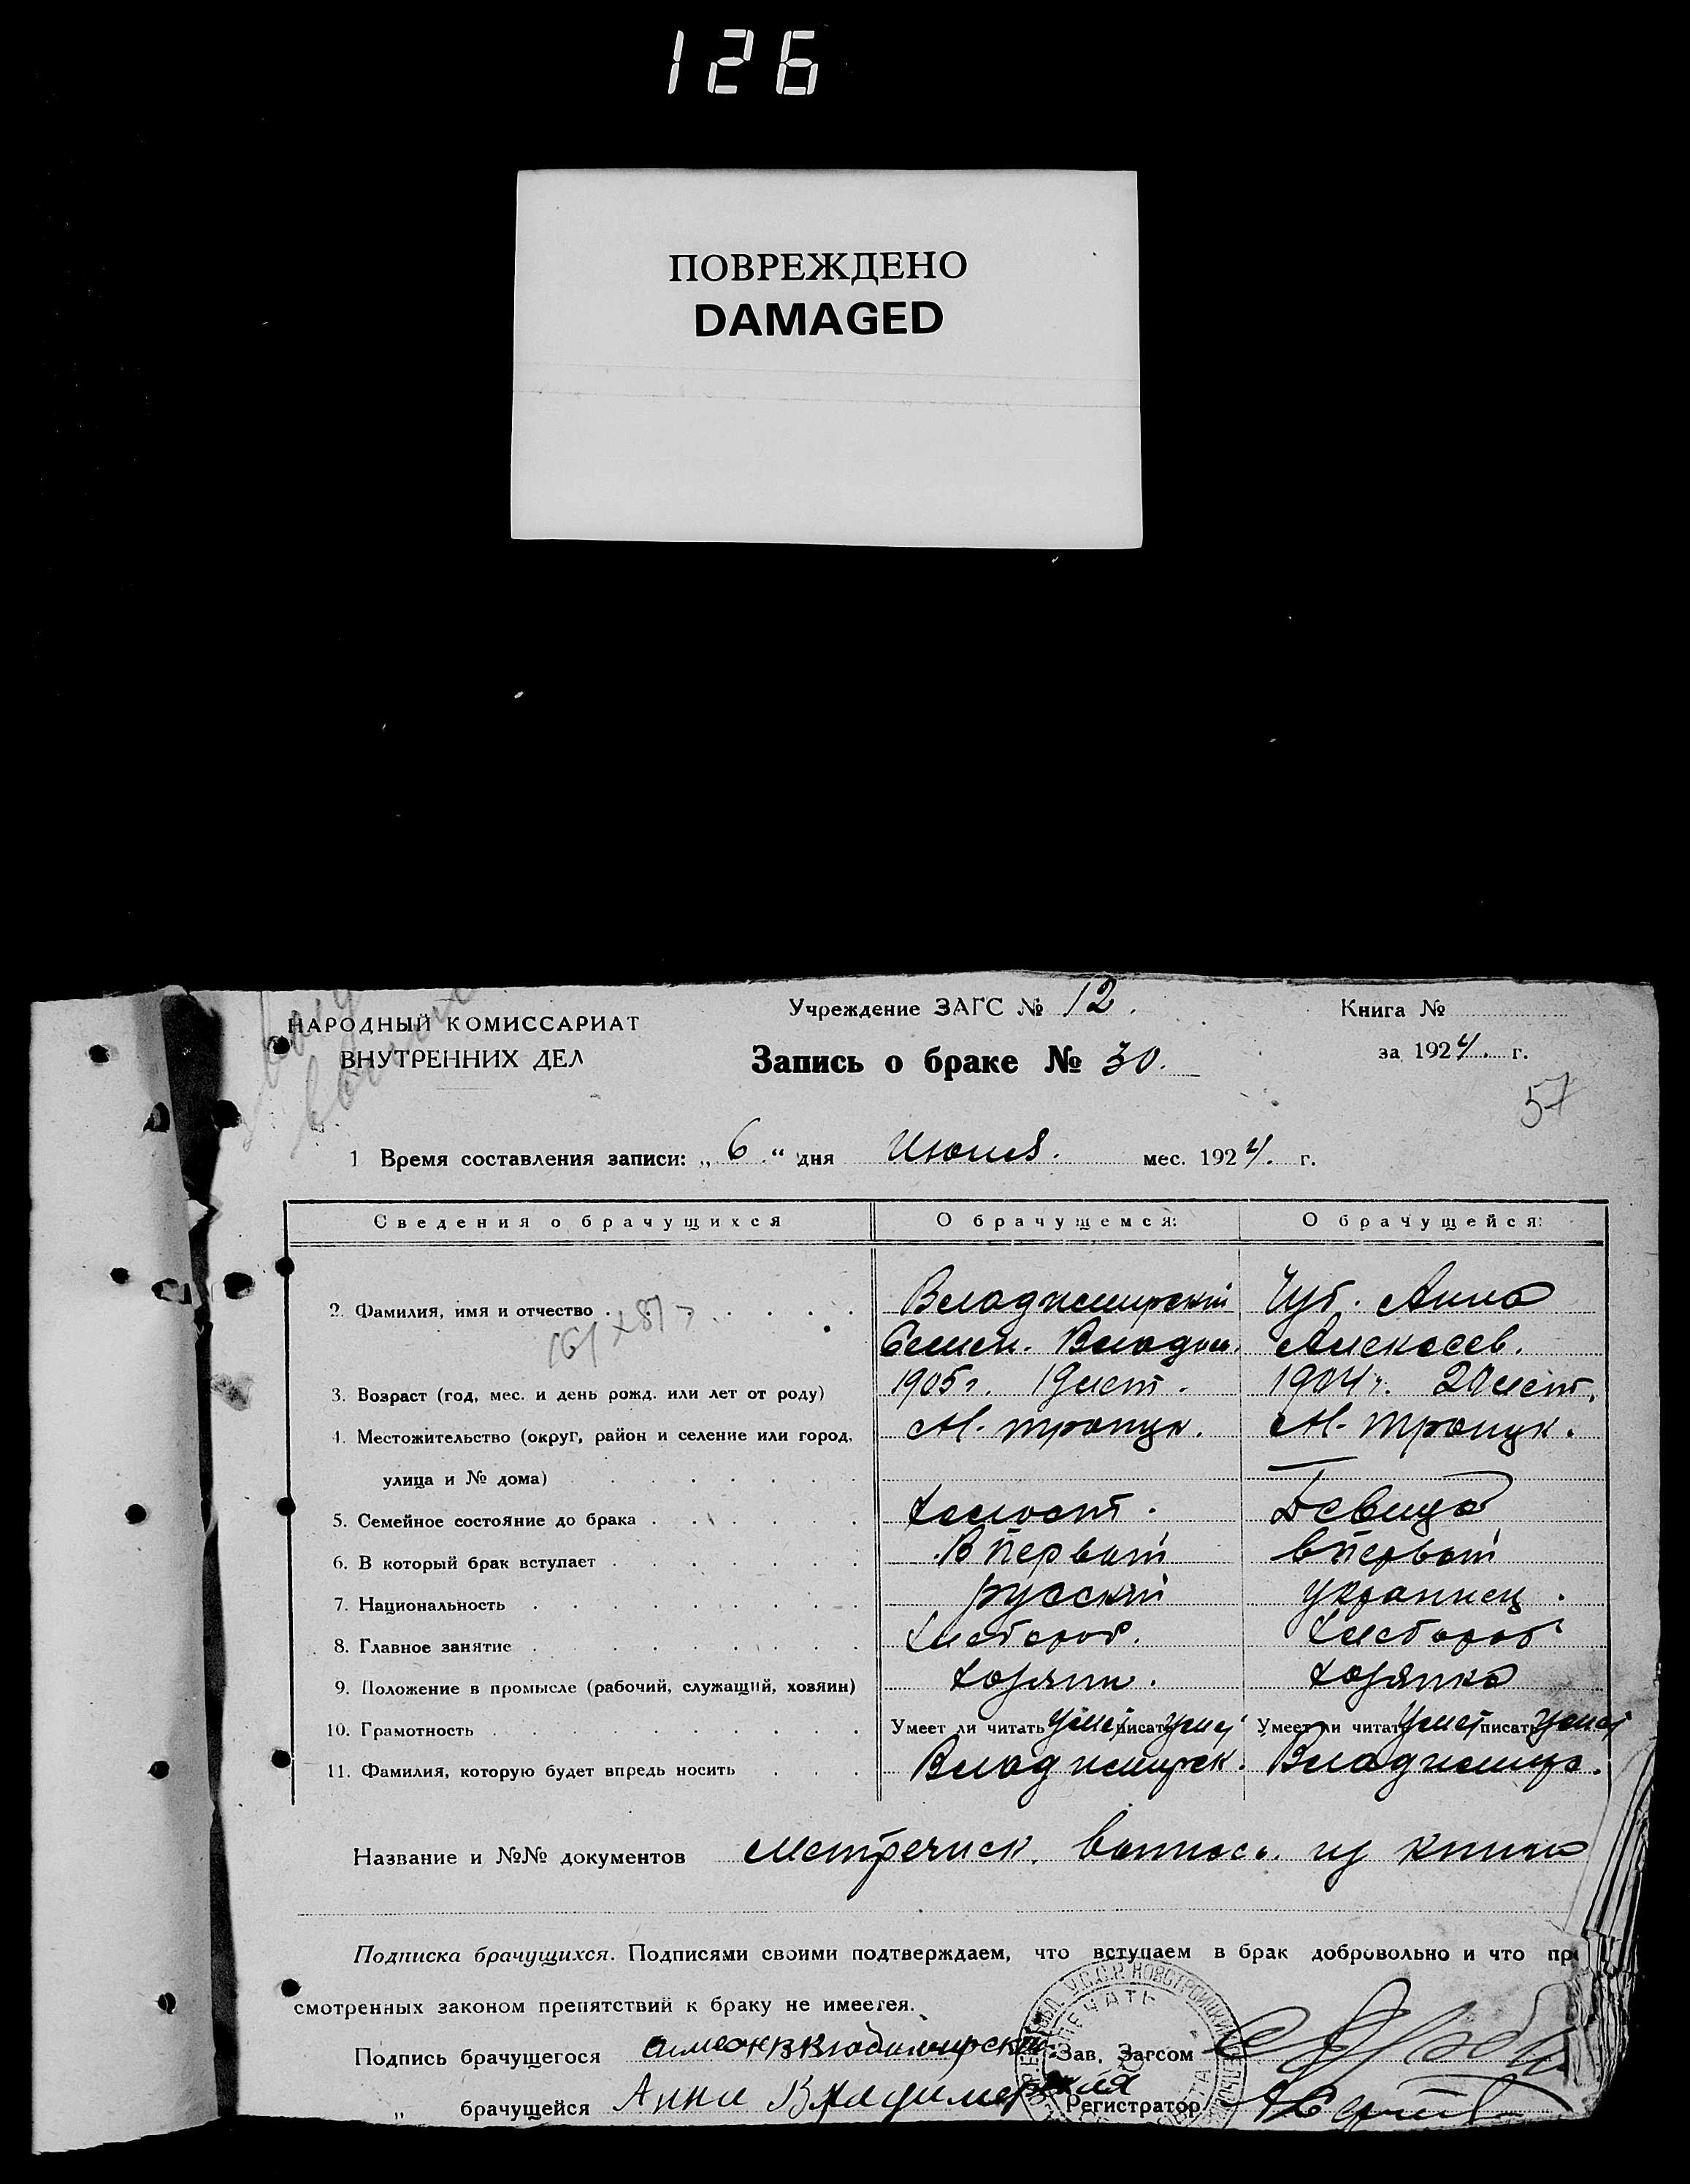 126
ПОВРЕЖДЕНО
DAMAGED
НАРОДНЫЙ КОМИССАРИАТ
ВНУТРЕННИХ ДЕЛ
Учреждение ЗАГС № 12.
Запись о браке № 30.
Книга №
за 1924. г.
57
1 Время составления записи: „ 6 “ дня Июня. мес. 1924. г.
Сведения о брачущихся О брачущемся: О брачущейся:
2. Фамилия, имя и отчество Владимирский Чуб. Анна
Семен. Владим. Алексеев.
3. Возраст (год, мес. и день рожд. или лет от роду) 1905 г. 19 лет. 1904 г. 20 лет.
4. Местожительство (округ, район и селение или город, М.
улица и № дома)
5. Семейное состояние до брака Холост. Девица
6. В который брак вступает В первый в первый
7. Национальность русский украинец.
8. Главное занятие Хлебороб. Хлебороб
9. Положение в промысле (рабочий, служащий, хозяин) Хозяин. Хозяйка
10. Грамотность Умеет ли читать Умеет писать умеет Умеет ли читать Умеет писать Умеет
11. Фамилия, которую будет впредь носить Владимирск. Владимирс.
Название и №№ документов Метрическ. выпись. из книги
Подписка брачущихся. Подписями своими подтверждаем, что вступаем в брак добровольно и что пре
смотренных законом препятствий к браку не имеется.
Подпись брачущегося Зав. Загсом
„ брачущейся Анна Владимерская Регистратор
ПЕЧАТЬ